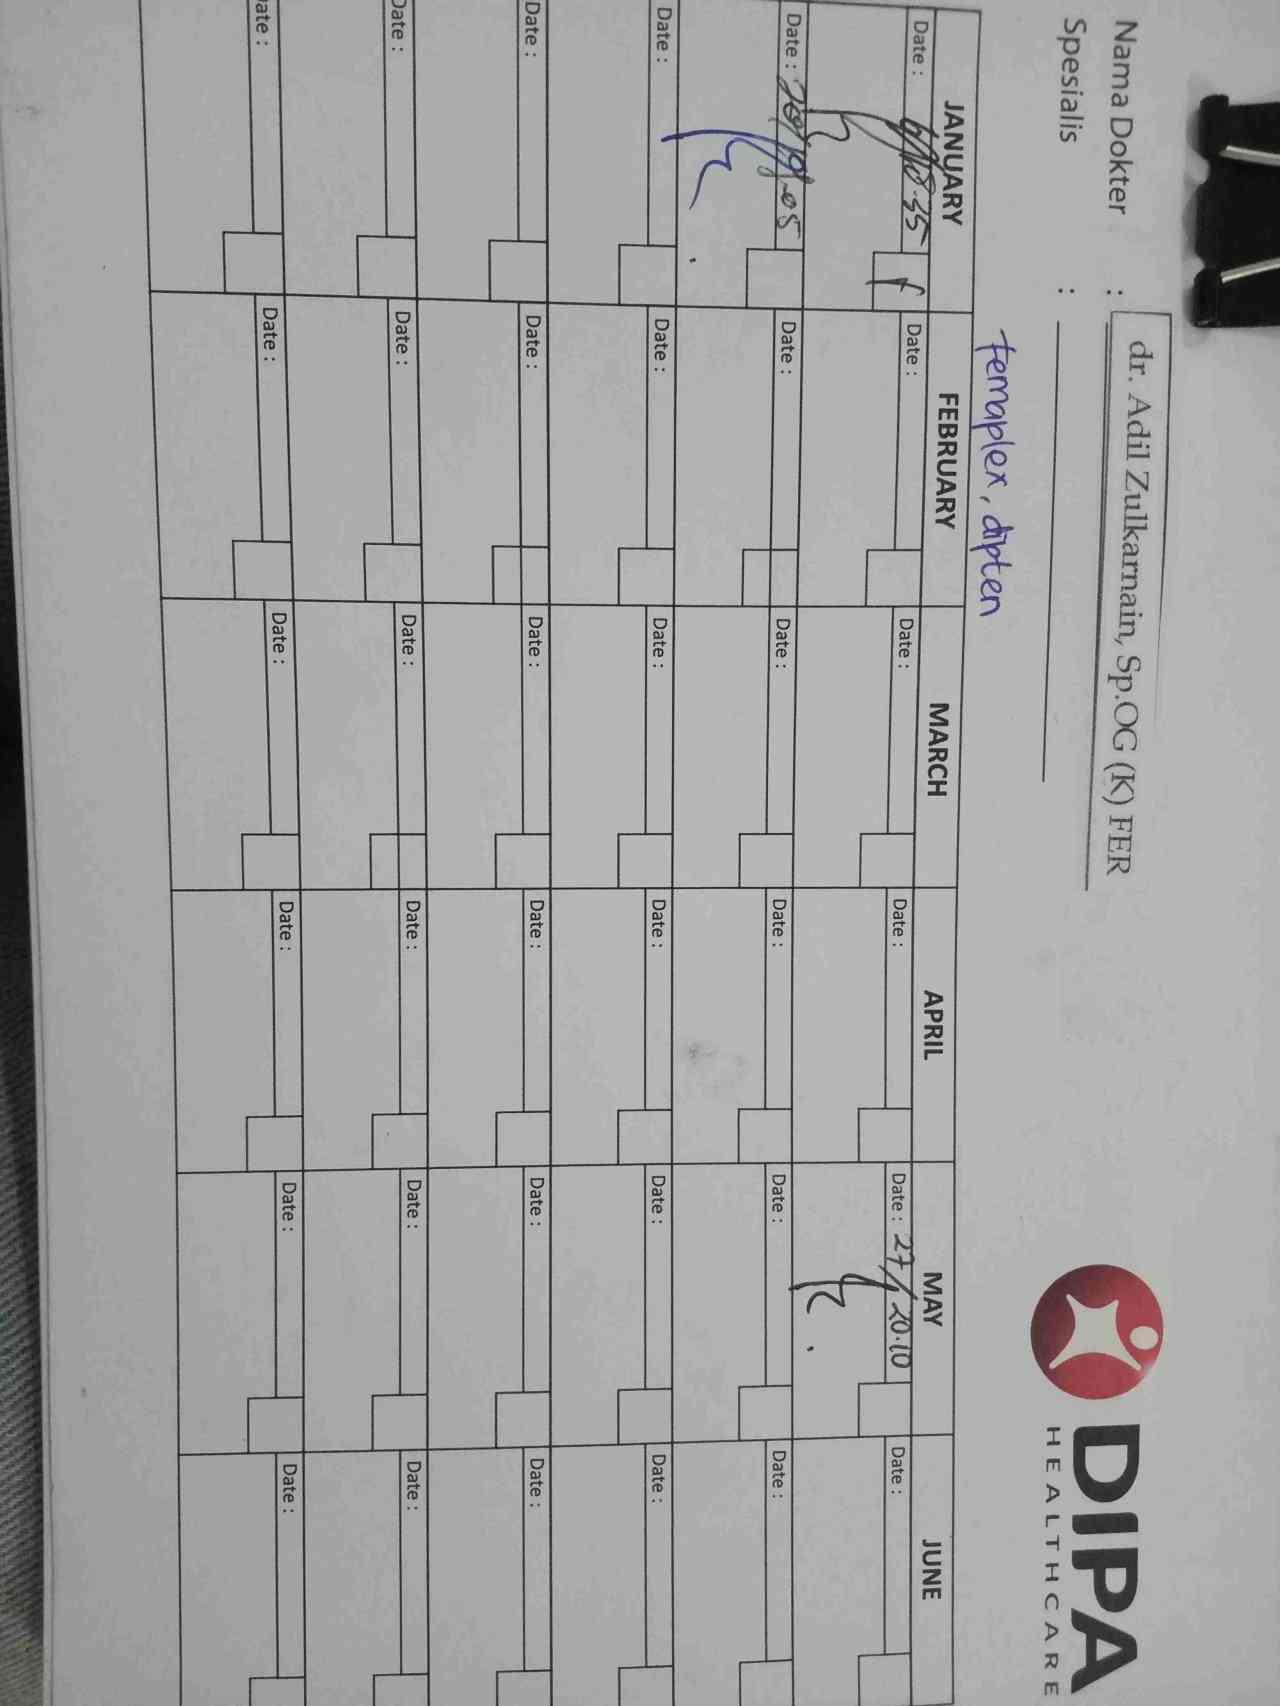 Nama Dokter : dr. Adil Zulkarnain, Sp.OG (K) FER
Spesialis :
DIPA
HEALTHCARE
Femaplex, dipten
JANUARY FEBRUARY MARCH APRIL MAY JUNE
Date : Date : Date : Date : Date : 27/20.10 Date :
Date : Date : Date : Date : Date : Date :
Date : Date : Date : Date : Date : Date :
Date : Date : Date : Date : Date : Date :
Date : Date : Date : Date : Date : Date :
Date : Date : Date : Date : Date : Date :